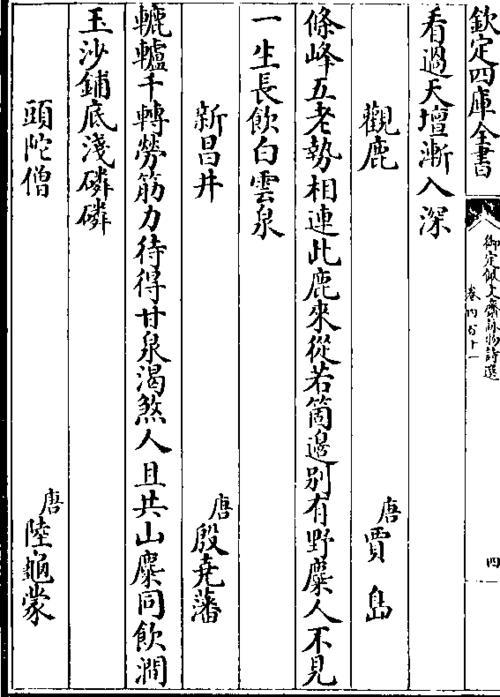 欽定四庫全書
御定佩文齋詠物詩選
卷四百十一
四
看過天壇漸入深
觀鹿
唐賈島
條峰五老勢相連此鹿來從若箇邉别有野麋人不見
一生長飲白雲泉
新昌井
唐殷堯藩
轆轤千轉勞筋力待得甘泉渴煞人且共山麋同飲澗
玉沙鋪底淺磷磷
頭陀僧
唐陸龜蒙